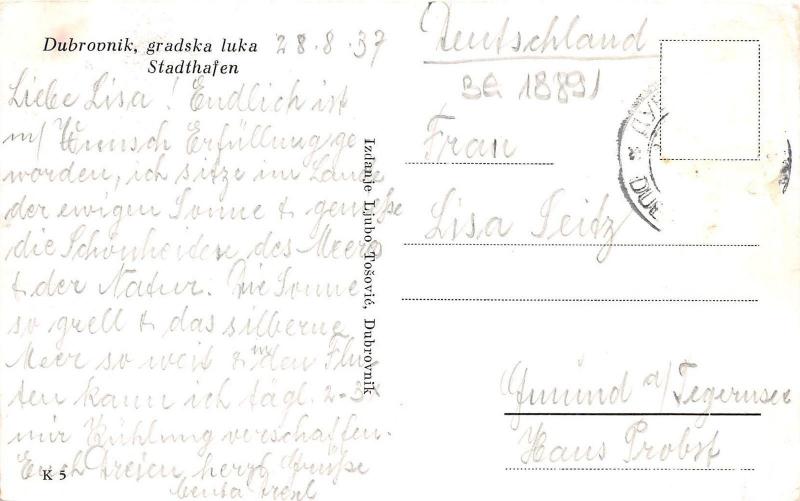 Dubrovnik, gradska luka 28.8.37
Stadthafen
Liebe Lisa! Endlich ist
m/ Wunsch Erfüllung ge
worden, ich sitze im Lande
der ewigen Sonne & genieße
die Schönheiten des Meeres
& der Natur. Die Sonne
so grell & das silberne
Meer so weit & in den Flu-
ten kann ich tägl. 2-3x
mir Kühlung verschaffen.
Euch herzl Grüße
K 5
Izdanje Ljubo Tošović, Dubrovnik
Deutschland
BG 18891
Frau
Lisa Seitz
Gmünd a/Tegernsee
Haus Probst